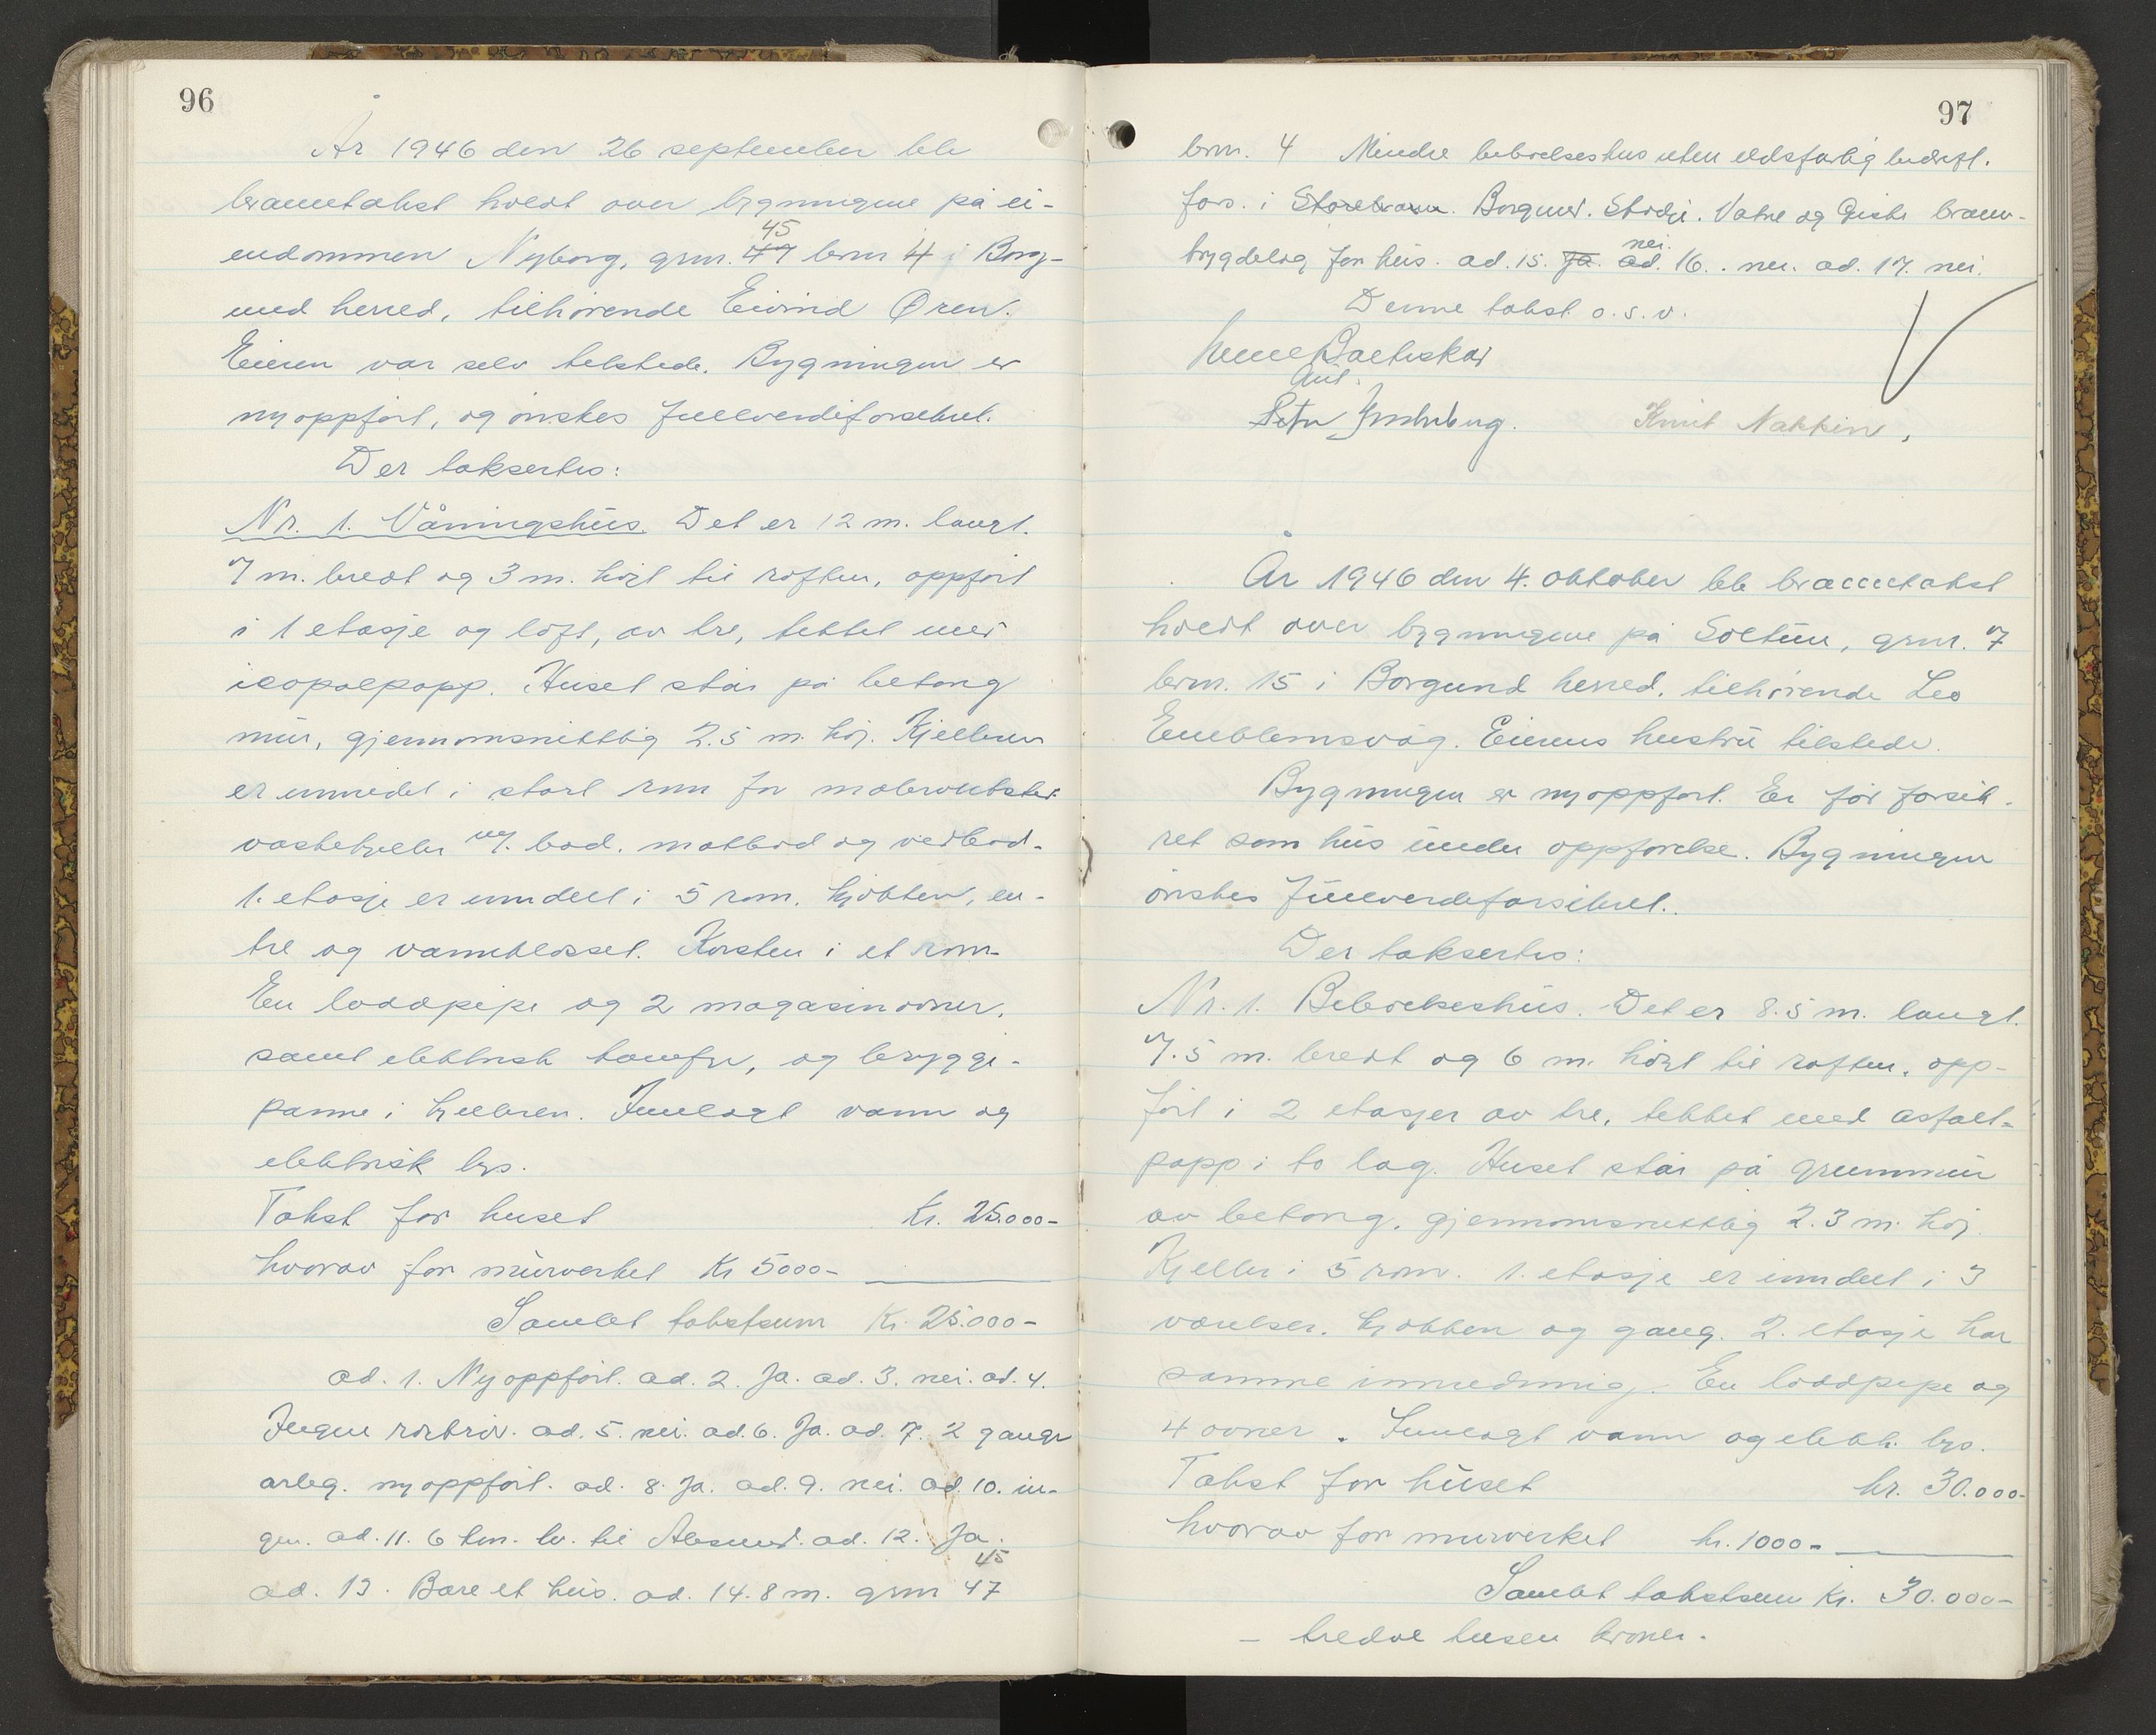 96
År 1946 den 26 september ble
branntakst holdt over bygningene på ei-
endommen Nyborg, gnr. 47 45 brnr 4 i Borg-
und herred, tilhörende Eivind Ören.
Eieren var selv tilstede. Bygningen er
nyoppfört, og önskes fullverdiforsikret.
Der taksertes:
Nr. 1. Våningshus. Det er 12 m. langt.
7 m. bredt og 3 m. högt til raften, oppfört
i 1 etasje og loft, av tre, tekket med
icopalpapp. Huset står på betong
mur, gjennomsnittlig 2.5 m. höj. Kjelleren
er innredet i stort rom for malerverksted
vaskekjeller og bod, matbod og vedbod.
1. etasje er inndelt i 5 rom, kjökken, en-
tre og vannklosset. Korsten i et rom.
En loddpipe og 2 magasinovner,
samt elektrisk komfyr, og brygge-
panne i kjelleren. Innlagt vann og
elektrisk lys.
Takst for huset Kr. 25.000-
hvorav for murverket Kr 5000-
Samlet takstsum Kr. 25.000-
ad. 1. Nyoppfört. ad. 2. Ja. ad. 3. nei. ad. 4.
Ingen . ad. 5. nei. ad. 6. Ja. ad. 7. 2 ganger
årleg. nyoppfört. ad. 8. Ja. ad. 9. nei. ad. 10. in-
gen. ad. 11. 6 km. til Ålesund. ad. 12. Ja.
ad. 13. Bare et hus. ad. 14. 8 m. gnr 47 45
97
brnr. 4 Mindre beboelseshus uten eldsfarlig bedrift.
fors. i Storebrann. Borgund. Stordji. Vatne og Giske brann-
trygdelag for hus. ad. 15. Ja. nei. ad. 16. nei. ad. 17. nei.
Denne takst o.s.v.
Peter Knut Nakkin,
År 1946 den 4. oktober ble branntakst
holdt over bygningene på Soltun, gnr. 7
brnr. 15 i Borgund herred, tilhörende Leo
Emblemsvåg. Eierens hustru tilstede.
Bygningen er nyoppfört. Er för forsik-
ret som hus under oppförelse. Bygningen
önskes fullverdiforsikret.
Der taksertes:
Nr. 1. Beboelseshus. Det er 8.5 m. langt.
7.5 m. bredt og 6 m. högt til raften, opp-
fört i 2 etasjer av tre, tekket med asfalt-
papp i to lag. Huset står på grunnmur
av betong, gjennomsnittlig 2.3 m. höj.
Kjeller i 5 rom. 1. etasje er inndelt i 3
værelser, kjökken og gang. 2. etasje har
samme innredning. En loddpipe og
4 ovner. Innlagt vann og elektr. lys.
Takst for huset kr. 30.000-
hvorav for murverket kr. 1000-
Samlet takstsum Kr. 30.000-
- tredve tusen kroner.